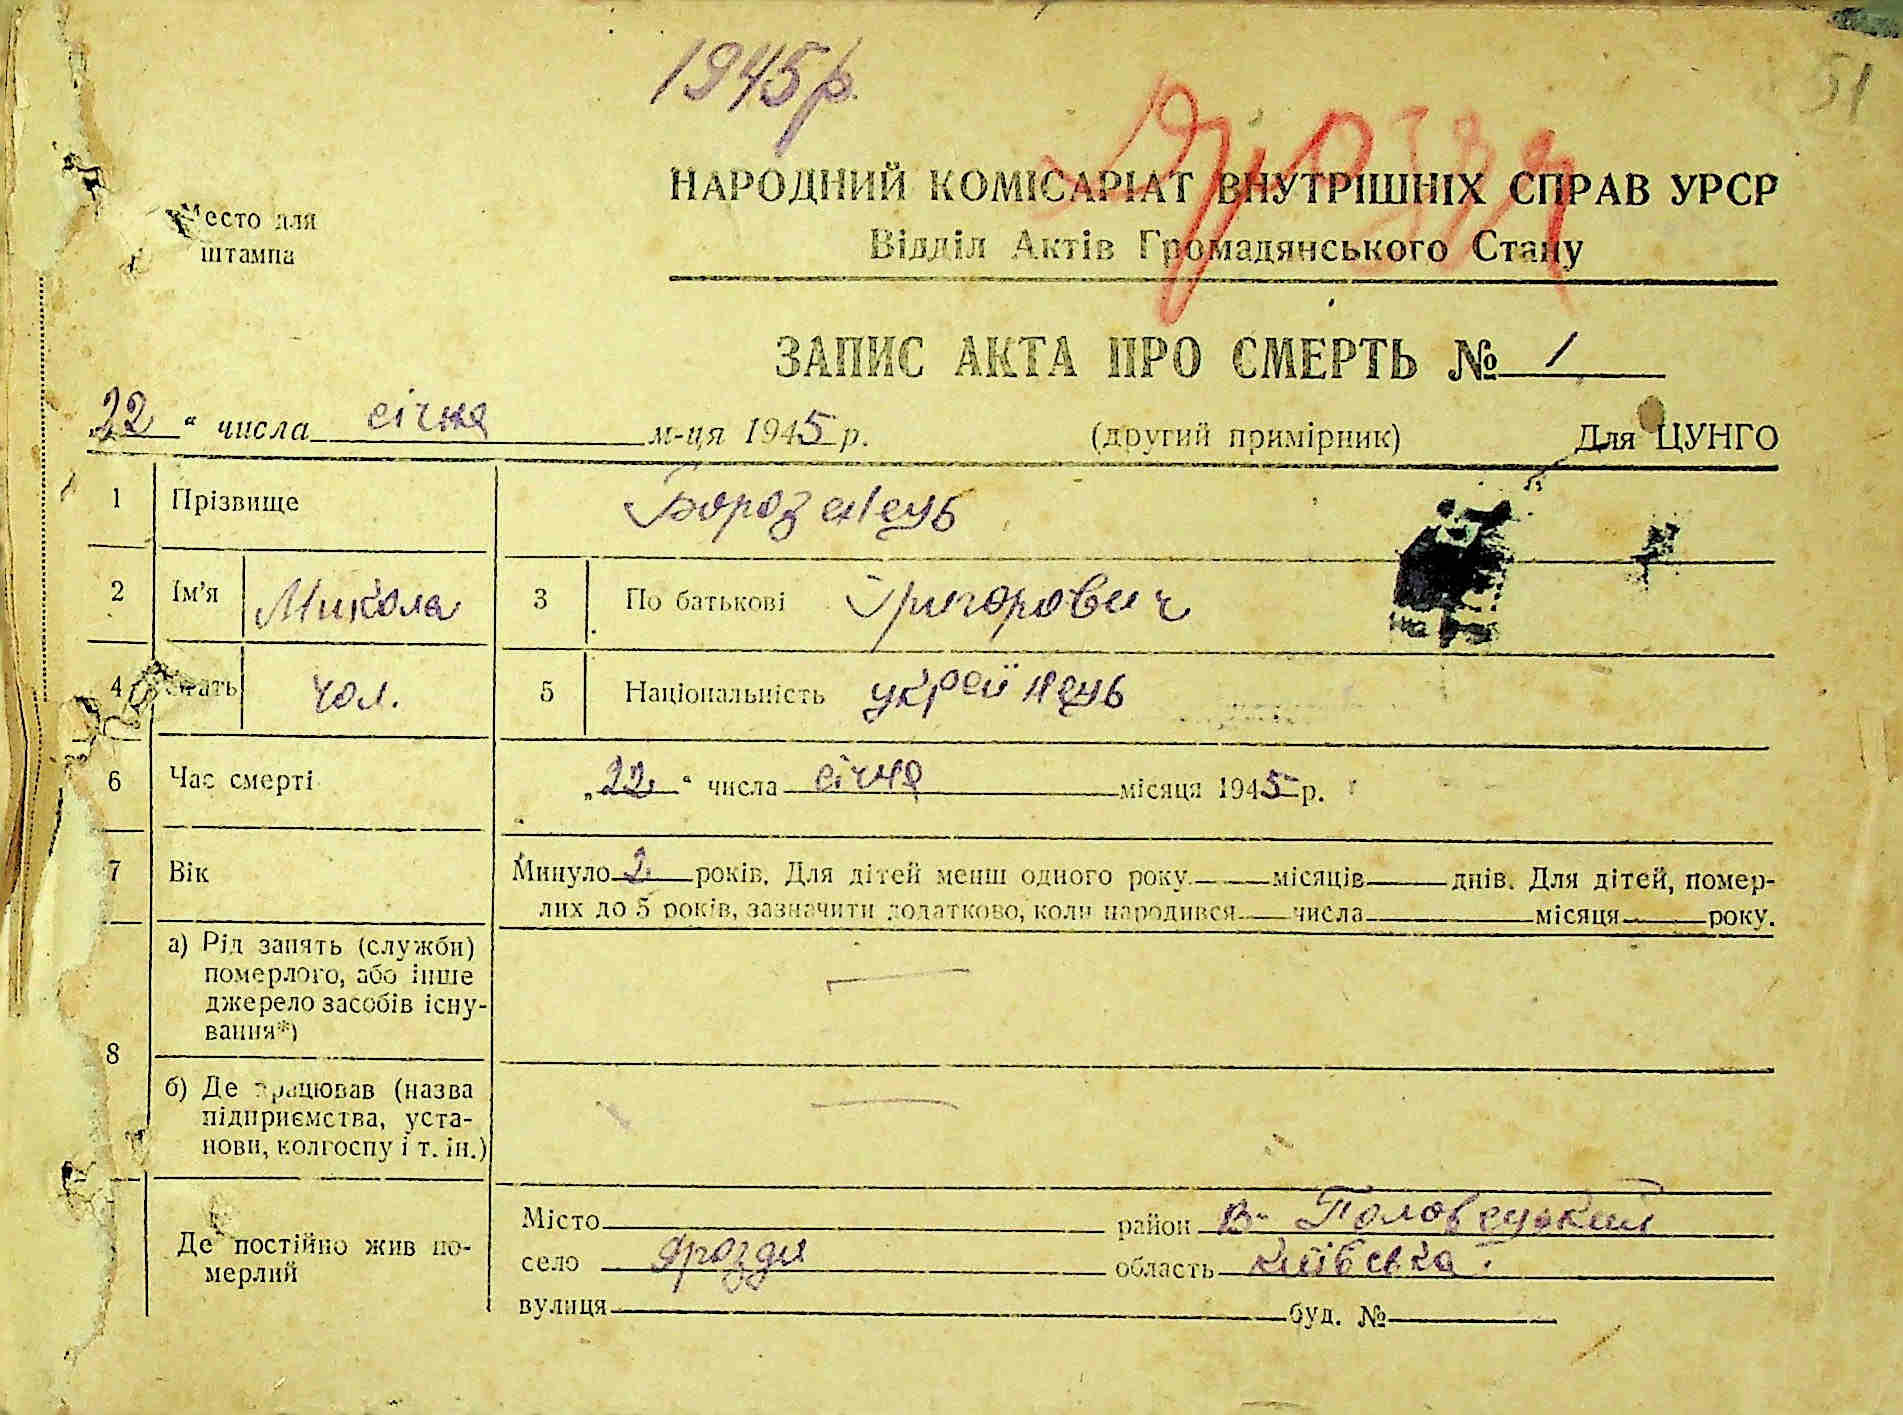 1945 р.
51
Дрозди
НАРОДНИЙ КОМІСАРІАТ ВНУТРІШНІХ СПРАВ УРСР
Место для
штампа
Відділ Актів Громадянського Стану
ЗАПИС АКТА ПРО СМЕРТЬ № 1
„22“ числа січня м-ця 1945 р. (другий примірник) Для ЦУНГО
1 Прізвище Борозенець
2 Ім’я Микола 3 По батькові Григорович
4 Стать чол. 5 Національність українець
6 Час смерті „22“ числа січня місяця 1945 р.
7 Вік Минуло 2 років. Для дітей менш одного року місяців днів. Для дітей, помер-
лих до 5 років, зазначити додатково, коли народився числа місяця року.
8 а) Рід занять (служби)
померлого, або інше
джерело засобів існу-
вання*)
—
б) Де працював (назва
підприємства, уста-
нови, колгоспу і т. ін.)
—
Де постійно жив по-
мерлий
Місто район В-Половецький
село Дрозди область київська.
вулиця буд. №